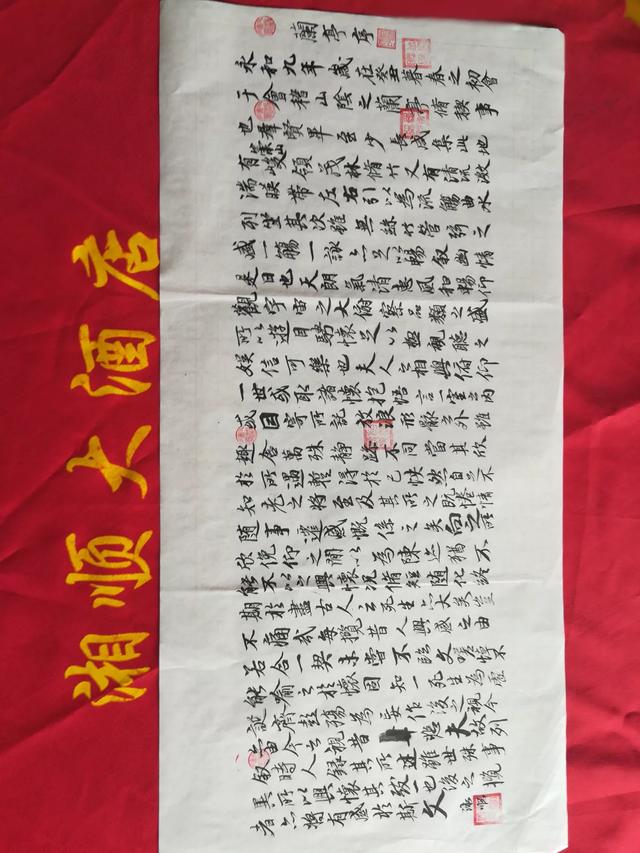 蘭亭序
永和九年歲在癸丑暮春之初會
于會稽山陰之蘭亭脩稧事
也羣賢畢至少長咸集此地
有崇山峻領茂林脩竹又有清流激
湍暎帶左右引以為流觴曲水
列坐其次雖無絲竹管弦之
盛一觴一詠亦足以暢敘幽情
是日也天朗氣清惠風和暢仰
觀宇宙之大俯察品類之盛
所以遊目騁懷足以極視聽之
娛信可樂也夫人之相與俯仰
一世或取諸懷抱悟言一室之內
或因寄所託放浪形骸之外雖
趣舍萬殊靜躁不同當其欣
於所遇暫得於己快然自足不
知老之將至及其所之既惓情
隨事遷感慨係之矣向之所
欣俛仰之閒以為陳迹猶不
能不以之興懷況脩短隨化終
期於盡古人云死生亦大矣豈
不痛哉每攬昔人興感之由
若合一契未嘗不臨文嗟悼不
能喻之於懷固知一死生為虛
誕齊彭殤為妄作後之視今
亦由今之視昔悲夫故列
敘時人錄其所述雖世殊事
異所以興懷其致一也後之攬
者亦將有感於斯文
湘顺大酒店